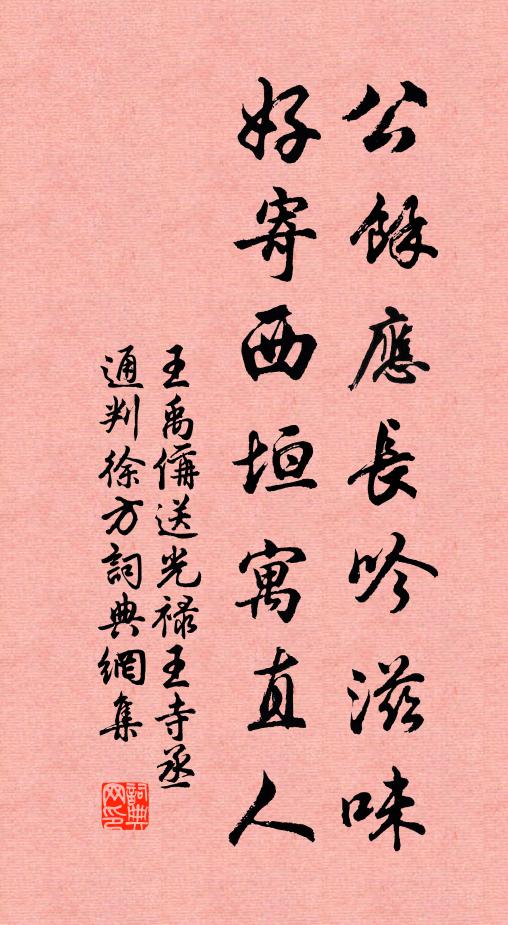 公餘應長吟滋味
好寄西垣寓直人
王禹偁送光禄王寺丞
通判徐方詞典網集
詞典网印